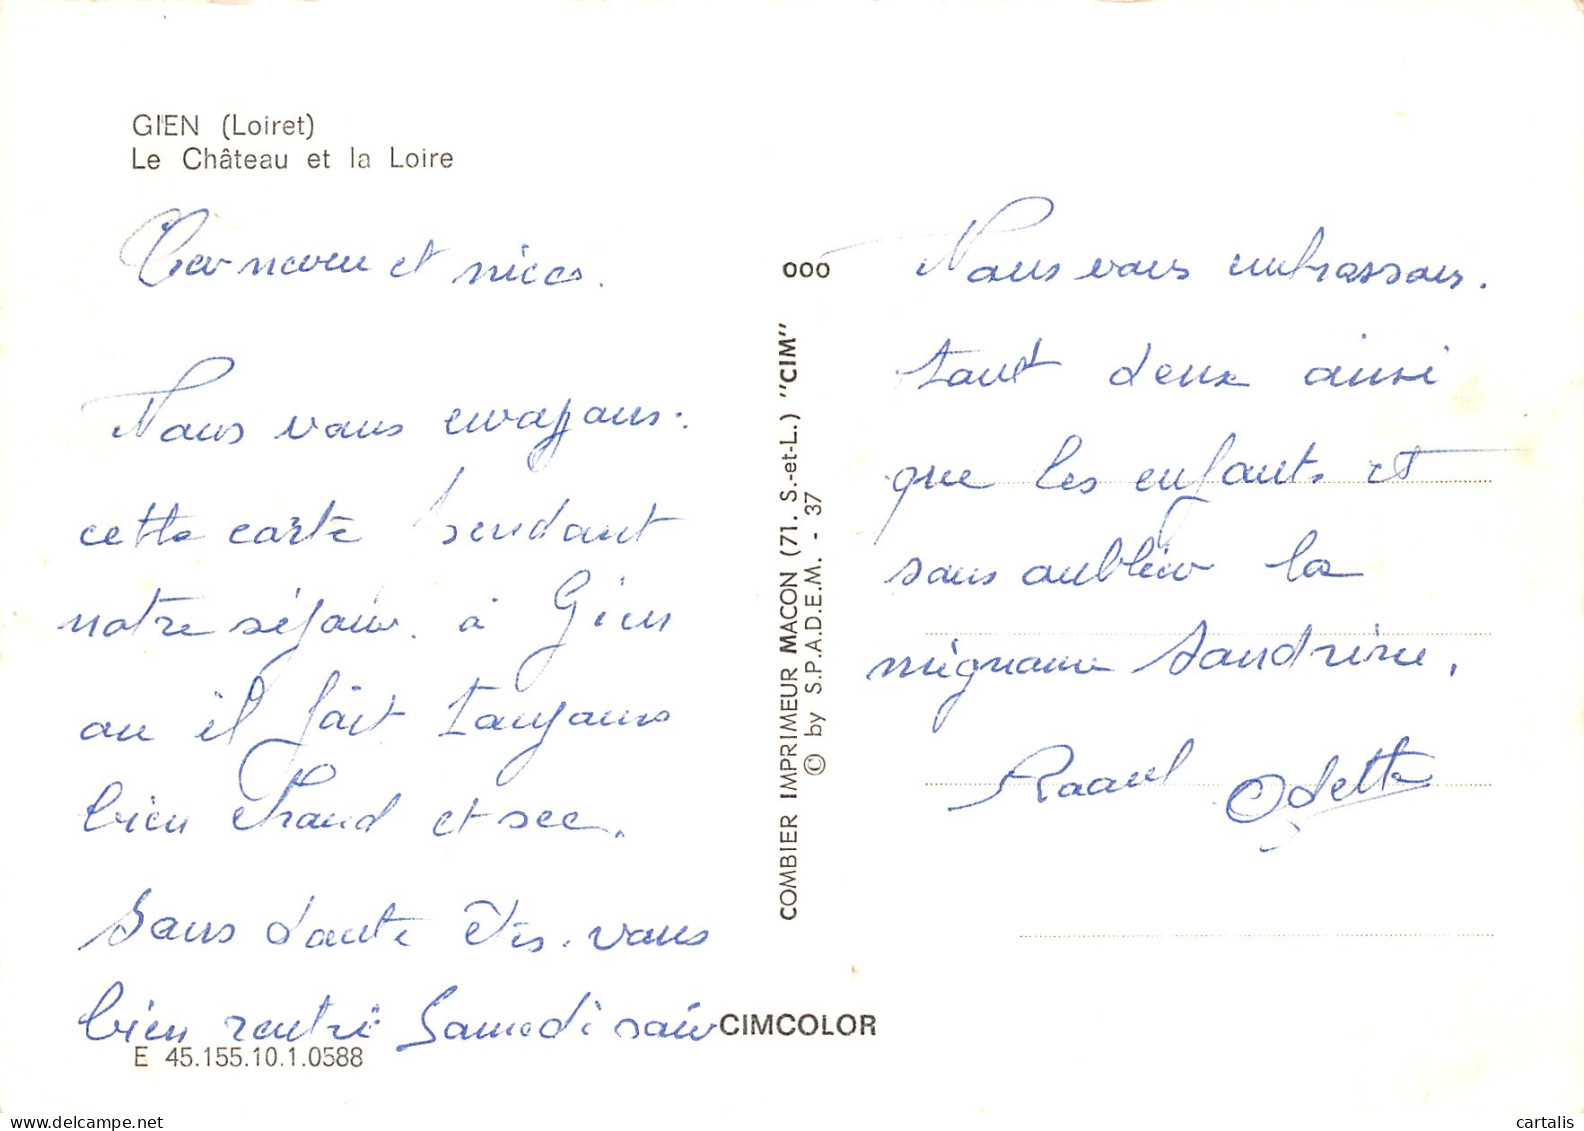 GIEN (Loiret)
Le Château et la Loire
et nièce.
Nous vous envoyons
cette carte pendant
notre séjour à Gien
ou il fait toujours
bien chaud et sec.
Sans doute êtes-vous
bien rentré Samedi soir
E 45.155.10.1.0588
COMBIER IMPRIMEUR MACON (71. S.-et-L.) "CIM"
© by S.P.A.D.E.M. - 37
000
CIMCOLOR
Nous vous embrassons.
tout deux ainsi
que les enfants et
sans oublier la
mignonne Sandrine.
Raoul Odette
delcampe.net
cartalis